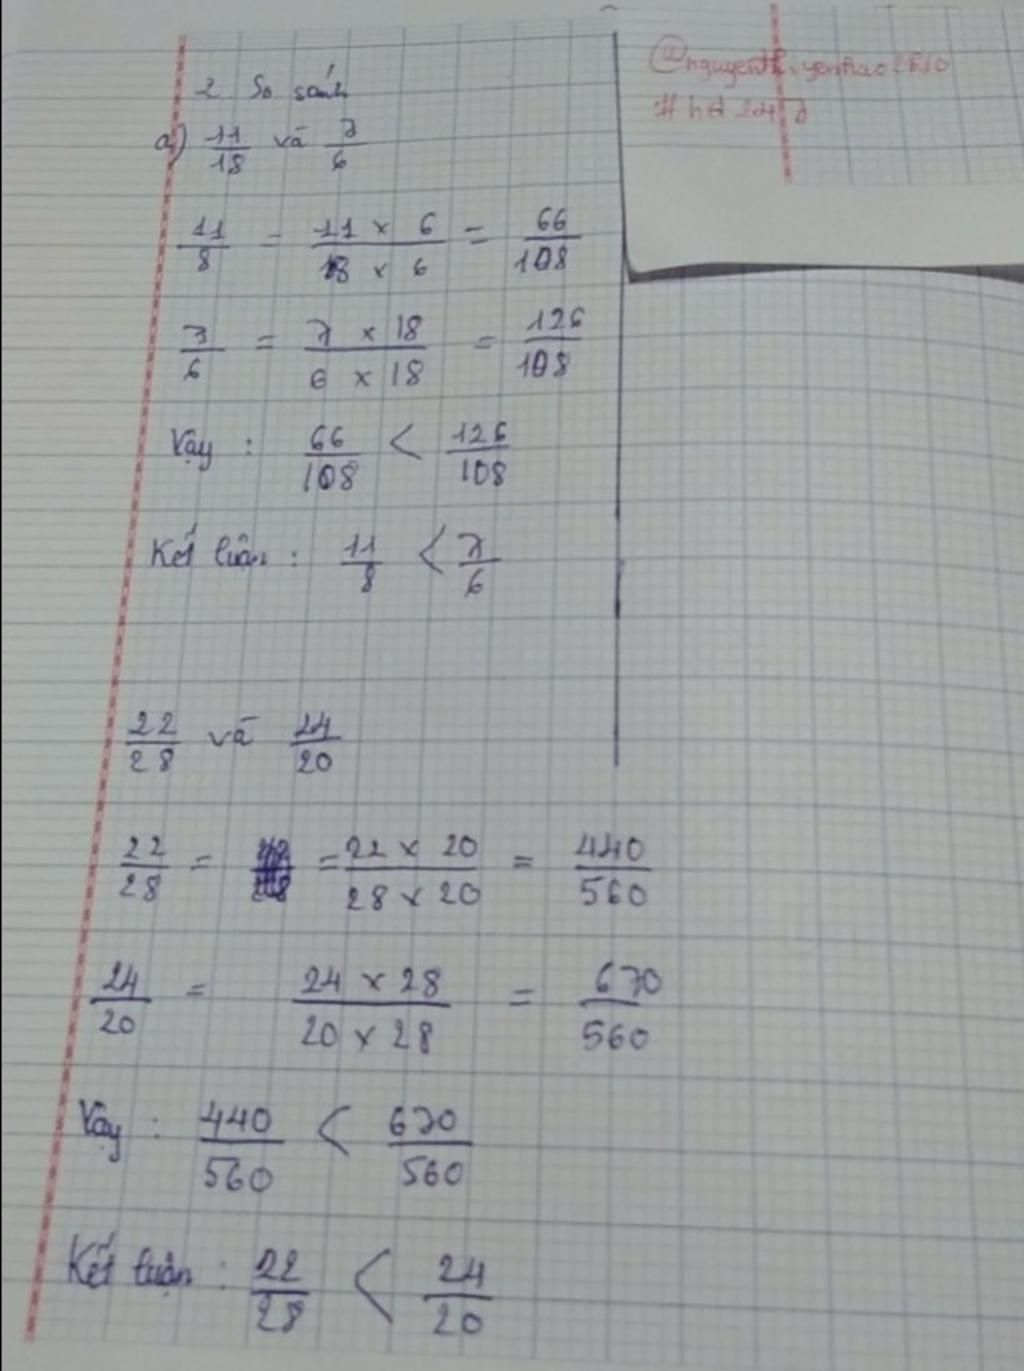 2 So sánh
a) 11/18 và 7/6
11/8 = 11 x 6 / 18 x 6 = 66/108
7/6 = 7 x 18 / 6 x 18 = 126/108
Vậy : 66/108 < 126/108
Kết luận : 11/8 < 7/6
22/28 và 24/20
22/28 = = 22 x 20 / 28 x 20 = 440/560
24/20 = 24 x 28 / 20 x 28 = 670/560
Vậy : 440/560 < 670/560
Kết luận : 22/28 < 24/20